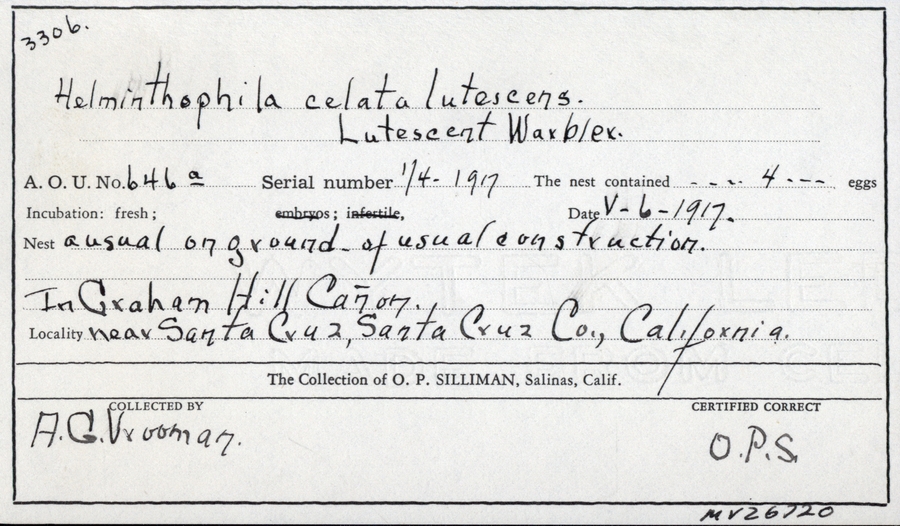 3306.
Helminthophila celata lutescens.
Lutescent Warbler.
A. O. U. No. 646 a Serial number 1/4- 1917 The nest contained - - - - 4 - - - eggs
Incubation: fresh; embryos; infertile, Date V-6-1917.
Nest as usual on ground - of usual construction.
In Graham Hill Cañon.
Locality near Santa Cruz, Santa Cruz Co., California.
The Collection of O. P. SILLIMAN, Salinas, Calif.
COLLECTED BY CERTIFIED CORRECT
A.G. Vrooman. O.P.S.
MV26720